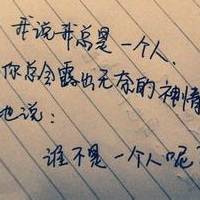 我说我总是一个人.
你总会露出无奈的神情
也说：
谁不是一个人呢？